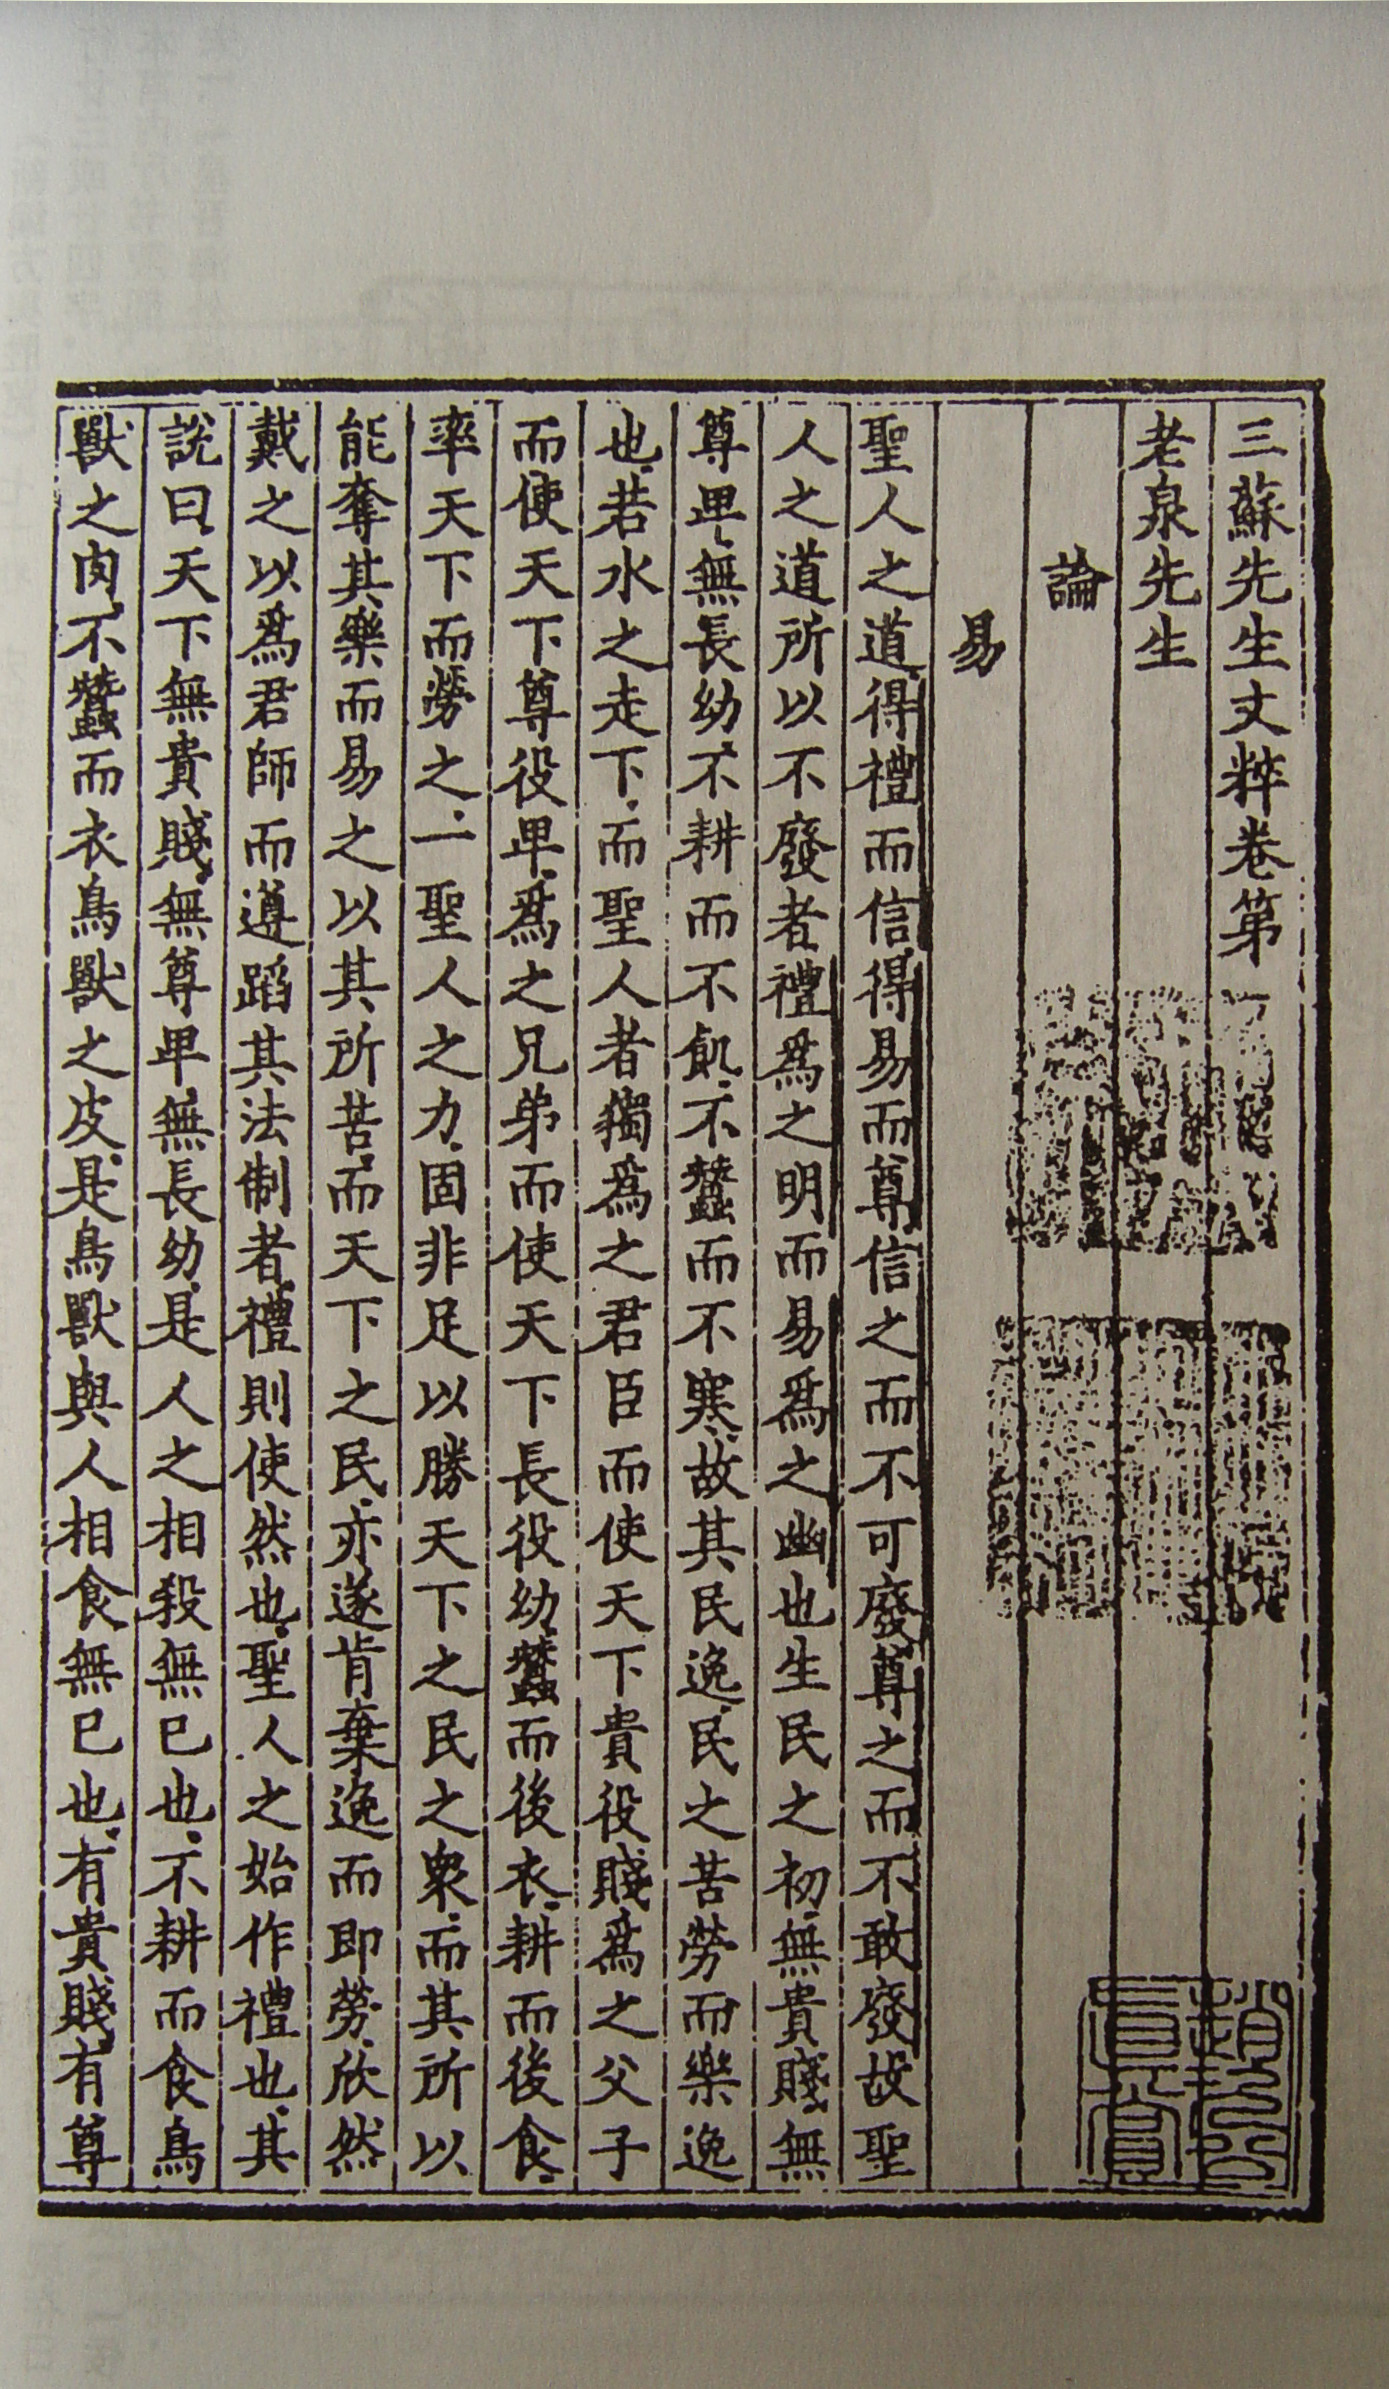 三蘇先生文粹卷第一
老泉先生
論
易
聖人之道得禮而信得易而尊信之而不可廢尊之而不敢廢故聖
人之道所以不廢者禮爲之明而易爲之幽也生民之初無貴賤無
尊卑無長幼不耕而不飢不蠶而不寒故其民逸民之苦勞而樂逸
也若水之走下而聖人者獨爲之君臣而使天下貴役賤爲之父子
而使天下尊役卑爲之兄弟而使天下長役幼蠶而後衣耕而後食
率天下而勞之一聖人之力固非足以勝天下之民之衆而其所以
能奪其樂而易之以其所苦而天下之民亦遂肯棄逸而即勞欣然
戴之以爲君師而遵蹈其法制者禮則使然也聖人之始作禮也其
說曰天下無貴賤無尊卑無長幼是人之相殺無已也不耕而食鳥
獸之肉不蠶而衣鳥獸之皮是鳥獸與人相食無已也有貴賤有尊